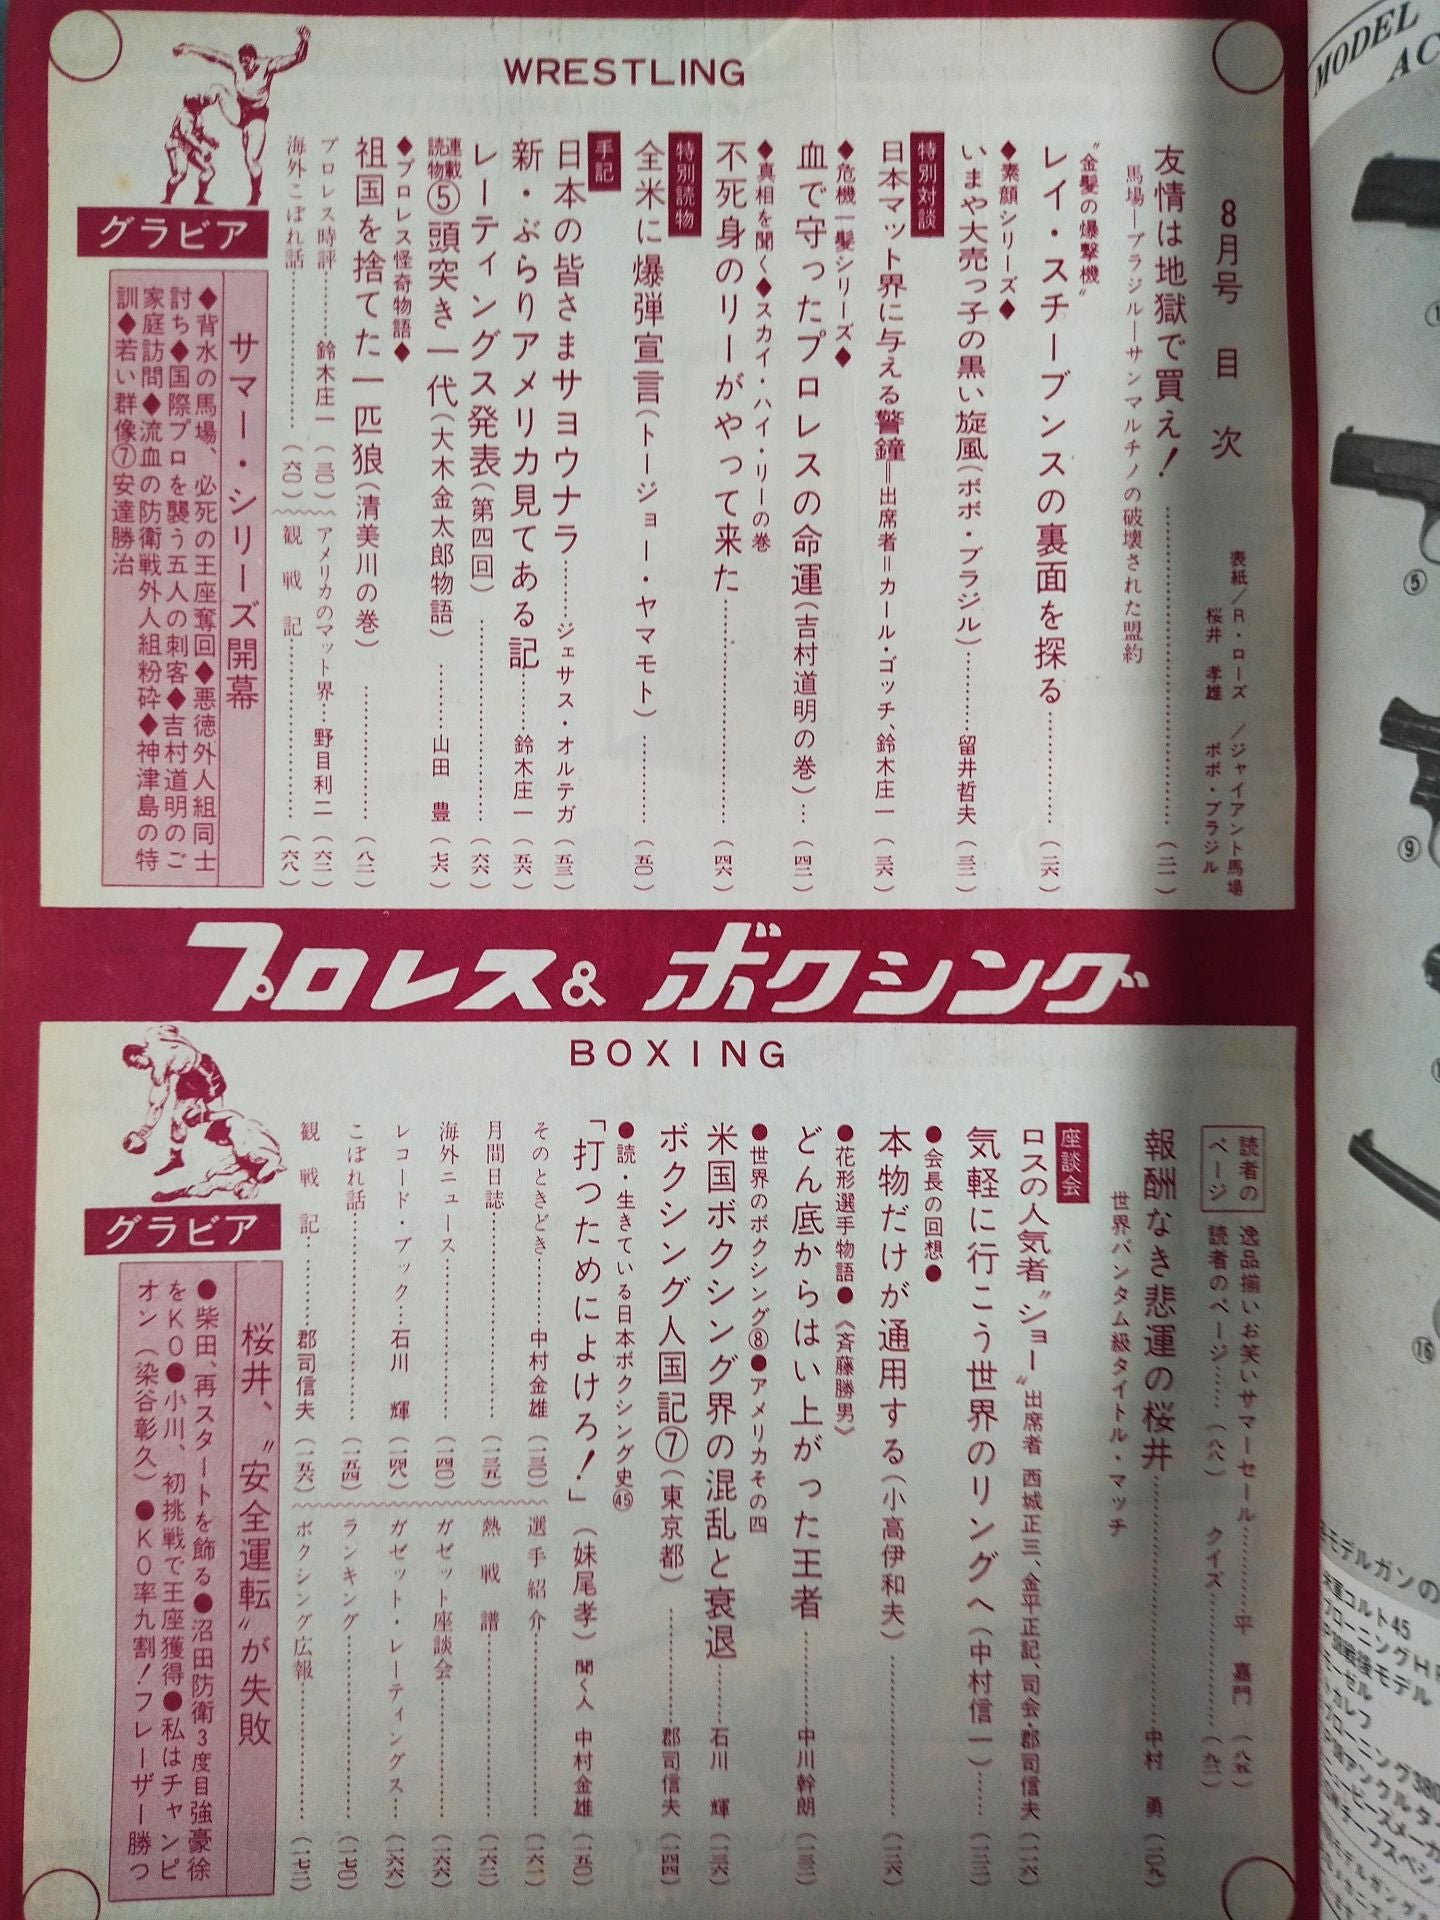 WRESTLING
8月号 目次
表紙/R・ローズ /ジャイアント馬場
桜井 孝雄 ボボ・ブラジル
友情は地獄で買え!……(二一)
馬場―ブラジル―サンマルチノの破壊された盟約
“金髪の爆撃機”
レイ・スチーブンスの裏面を探る……(二六)
◆素顔シリーズ◆
いまや大売っ子の黒い旋風(ボボ・ブラジル)……留井哲夫(三二)
特別対談
日本マット界に与える警鐘=出席者=カール・ゴッチ、鈴木庄一(三六)
◆危機一髪シリーズ◆
血で守ったプロレスの命運(吉村道明の巻)…(四二)
◆真相を聞く◆スカイ・ハイ・リーの巻
不死身のリーがやって来た……(四六)
特別読物
全米に爆弾宣言(トージョー・ヤマモト)……(五〇)
手記
日本の皆さまサヨウナラ……ジェサス・オルテガ(五三)
新・ぶらりアメリカ見てある記……鈴木庄一(五六)
レーティングス発表(第四回)……(六六)
連載読物⑤頭突き一代(大木金太郎物語)……山田 豊(七六)
◆プロレス怪奇物語◆
祖国を捨てた一匹狼(清美川の巻)……(八二)
プロレス時評……鈴木庄一(三〇)
アメリカのマット界…野目利二(六二)
海外こぼれ話……(六〇)
観戦記……(六八)
グラビア
サマー・シリーズ開幕
◆背水の馬場、必死の王座奪回◆悪徳外人組同士
討ち◆国際プロを襲う五人の刺客◆吉村道明のご
家庭訪問◆流血の防衛戦外人組粉砕◆神津島の特
訓◆若い群像⑦安達勝治
プロレス&ボクシング
BOXING
読者のページ
逸品揃いお笑いサマーセール……平 嘉門(八五)
読者のページ……(八八)
クイズ……(九二)
報酬なき悲運の桜井……中村 勇(一〇九)
世界バンタム級タイトル・マッチ
座談会
ロスの人気者“ショー”出席者 西城正三、金平正記、司会・郡司信夫(一一六)
気軽に行こう世界のリングへ(中村信一)……(一二二)
●会長の回想●
本物だけが通用する(小高伊和夫)……(一二六)
●花形選手物語●《斉藤勝男》
どん底からはい上がった王者……中川幹朗(一三二)
●世界のボクシング⑧●アメリカその四
米国ボクシング界の混乱と衰退……石川 輝(一三六)
ボクシング人国記⑦(東京都)……郡司信夫(一四四)
●読・生きている日本ボクシング史㊺
「打つためによけろ!」(妹尾孝)聞く人 中村金雄(一五〇)
そのときどき……中村金雄(一三〇)
選手紹介……(一六一)
月間日誌……(一三五)
熱戦譜……(一六二)
海外ニュース……(一四〇)
ガゼット座談会……(一六六)
レコード・ブック…石川 輝(一四八)
ガゼット・レーティングス…(一六六)
こぼれ話……(一五四)
ランキング……(一七〇)
観戦記……郡司信夫(一五六)
ボクシング広報……(一七二)
グラビア
桜井、“安全運転”が失敗
●柴田、再スタートを飾る●沼田防衛3度目強豪徐
をKO●小川、初挑戦で王座獲得●私はチャンピ
オン(染谷彰久)●KO率九割!フレーザー勝つ
MODEL
AC
⑤
⑨
⑯
モデルガンの
米軍コルト45
ブローニングHP
P38戦後モデル
モーゼル
トカレフ
ブローニング380
ピースメーカ